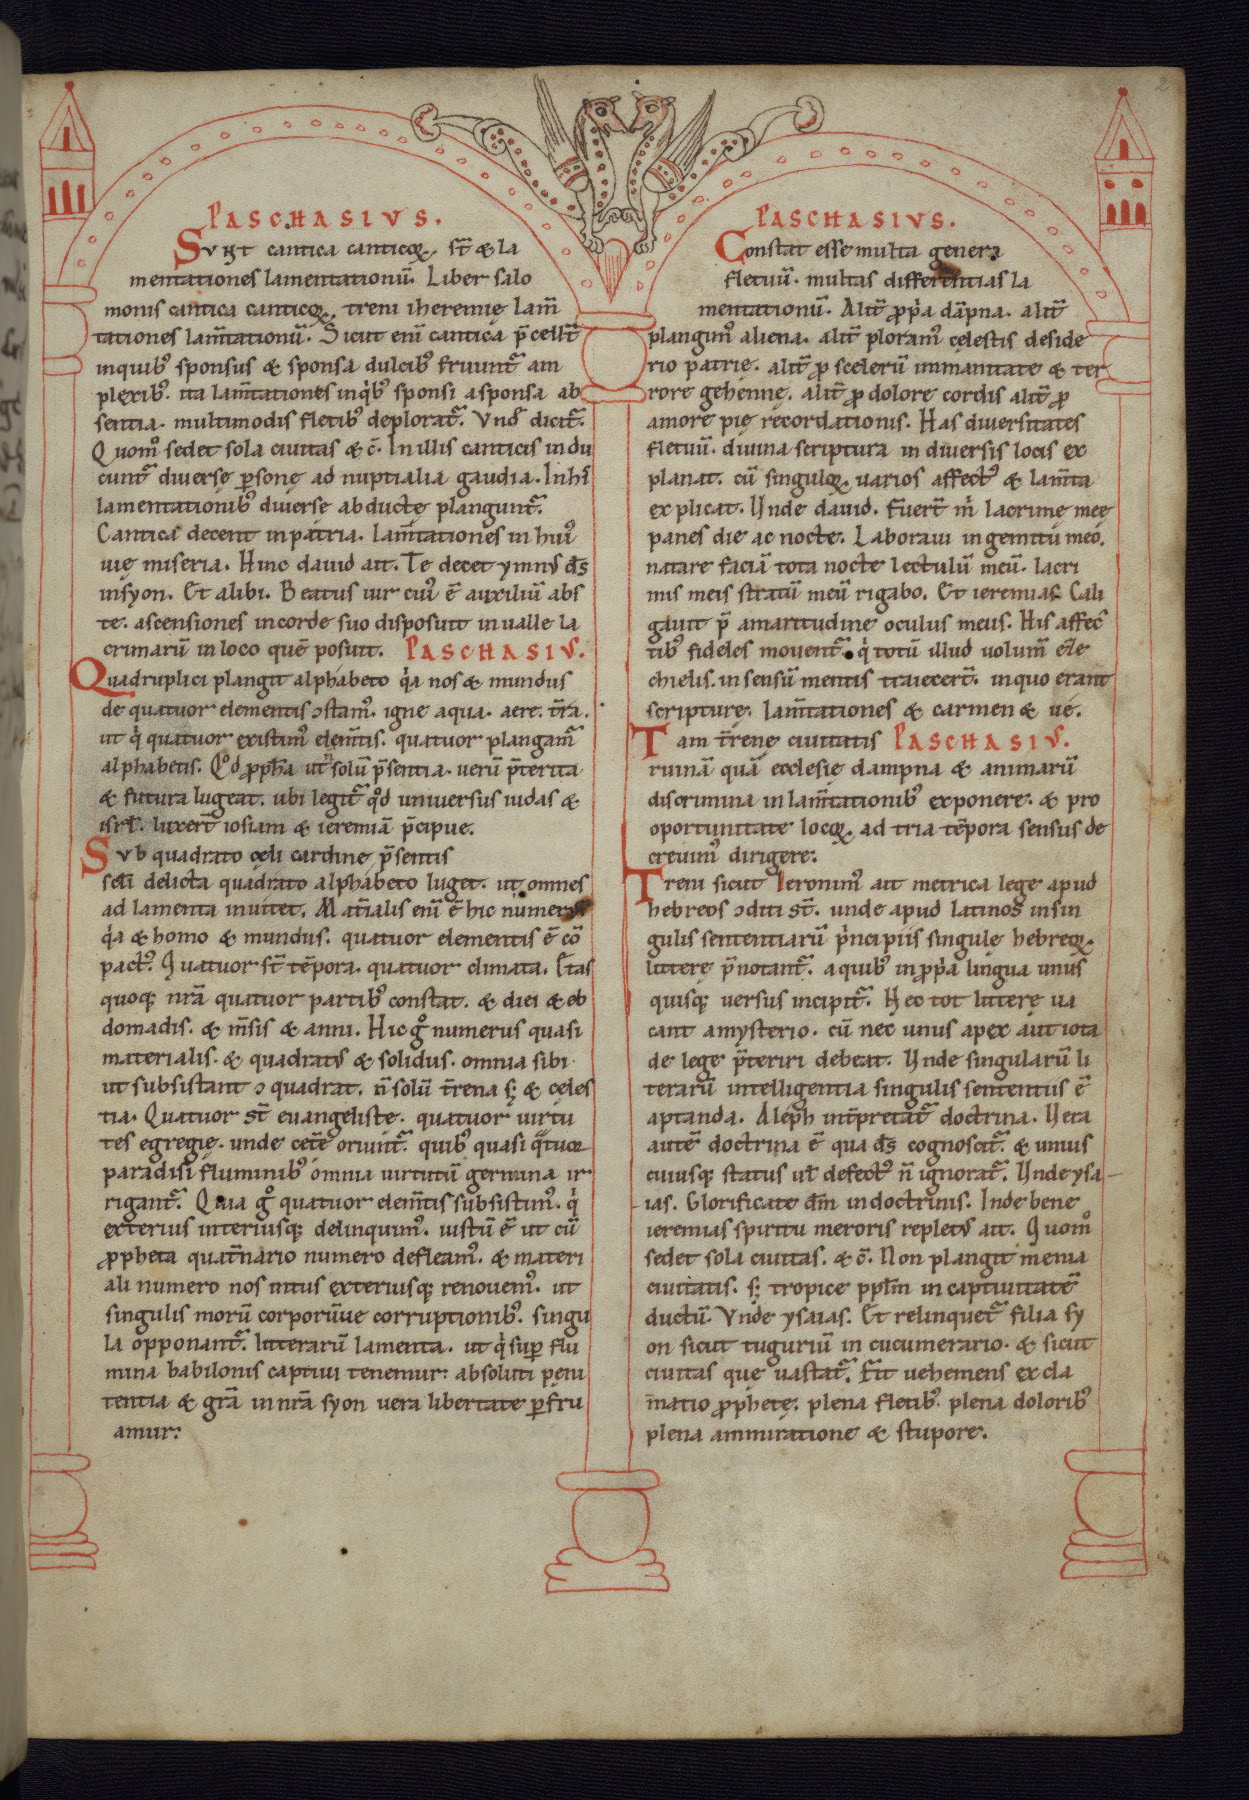 2
PASCHASIVS.
Sunt cantica canticoꝝ, st̄ & la
mentationes lamentationū. Liber salo
monis cantica canticoꝝ, treni iheremię lam̄
tationes lam̄tationū. Sicut enī cantica p̄cellt̄
inquibꝰ sponsus & sponsa dulcibꝰ fruunt᷑ am
plexibꝰ. ita lam̄tationes in q̇bꝰ sponsi asponsa ab
sentia. multimodis fletibꝰ deplorat᷑. Vnd̄ dicit᷑.
Quom̊ sedet sola ciuitas & c̄. In illis canticis in du
cunt᷑ diuersę ꝑsonę ad nuptialia gaudia. In hı̄s
lamentationibꝰ diuerse abductę plangunt᷑.
Cantica decent in patria. lam̄tationes in huiꝰ
uię miseria. Hinc dauid ait. Te decet ymnꝰ d̄s
insyon. Et alibi. Beatus uir cuiꝰ ē auxiliū abs
te. ascensiones incorde suo disposuit inualle la
crimarū in loco quē posuit. PASCHASIVS.
Quadruplici plangit alphabeto q̇a nos & mundus
de quatuor elementis ↄstamꝰ. igne aqua. aere. t̄ra.
ut q̇ quatuor existimꝰ elem̄tis. quatuor plangam᷑
alphabetis. Qd̊ ꝓph̄a ut n̄ solū p̄sentia. uerū p̄terita
& futura lugeat. ubi legit᷑ qd̊ uniuersus iudas &
isrl̄. luxert̄ iosiam & ieremiā p̄cipue.
Sub quadrato cęli cardine p̄sentis
sc̄li delicta quadrato alphabeto luget. ut omnes
ad lamenta inuitet. Mat̄ialis enī ē hic numerus
q̇a & homo & mundus. quatuor elementis ē cō
pactꝰ. Quatuor st̄ tēpora. quatuor climata. Etas
quoqꝫ nr̄a quatuor partibꝰ constat. & diei & eb
domadis. & m̄sis & anni. Hic g̊ numerus quasi
materialis. & quadratꝰ & solidus. omnia sibi
ut subsistant ↄ quadrat. n̄ solū t̄rena sꝫ & celes
tia. Quatuor st̄ euangeliste. quatuor uirtu
tes egregię. unde cet̄e oriunt᷑. quibꝰ quasi q̄tuor
paradisi fluminibꝰ omnia uirtutū germina ir
rigant᷑. Quia g̊ quatuor elem̄tis subsistimꝰ. q̇
exterius interiusqꝫ delinquimꝰ. iustū ē ut cū
ꝓpheta quat̄nario numero defleamꝰ. & materi
ali numero nos intus exteriusqꝫ renouemꝰ. ut
singulis morū corporūue corruptionibꝰ. singu
la opponant᷑. litterarū lamenta. ut q̇ suꝑ flu
mina babilonis captiui tenemur: absoluti peni
tentia & gr̄a in nr̄a syon uera libertate ꝑfru
amur:
PASCHASIVS.
Constat esse multa genera
fletuū. multas differentias la
mentationū. Alit̄ ꝓpa dāpna. alit̄
plangimꝰ aliena. alit̄ ploramꝰ cęlestis deside
rio patrie. alit̄ ꝓ scelerū inmanitate & ter
rore gehennę. alit̄ ꝓ dolore cordis alit̄ ꝓ
amore pię recordationis. Has diuersitates
fletuū. diuina scriptura in diuersis locis ex
planat. cū singuloꝝ uarios affectꝰ & lam̄ta
explicat. Unde dauid. Fuert̄ m̄ lacrimę mee
panes die ac nocte. Laboraui ingemitu meo.
natare faciā tota nocte lectulū meū. lacri
mis meis stratū meū rigabo. Et ieremias. Cali
gauit p̄ amaritudine oculus meus. His affec
tibꝰ fideles mouent᷑. q̇ totū illud uolum̄ ēze
chielis. in sensū mentis traiecert̄. in quo erant
scripture. lam̄tationes & carmen & ue.
Tam t̄renę ciuitatis PASCHASIVS.
ruinā quā ecclesie dampna & animarū
discrimina in lam̄tationibꝰ exponere. & pro
oportunitate locoꝝ ad tria tēpora sensus de
creuimꝰ dirigere:
Treni sicut Ieronimꝰ ait metrica lege apud
hebreos ↄditi st̄. unde apud latinos insin
gulis sententiarū ṗncipiis singulę hebreoꝝ
litterę p̄notant᷑. a quibꝰ in ꝓpa lingua unus
quisqꝫ uersus incipit᷑. Hec tot litterę ua
cant a mysterio. cū nec unus apex aut iota
de lege p̄teriri debeat. Unde singularū li
terarū intelligentia singulis sententiis ē
aptanda. Aleph int̄pretat᷑ doctrina. Uera
autē doctrina ē qua d̄s cognoscit᷑. & unius
cuiusqꝫ status ul̄ defectꝰ n̄ ignorat᷑. Unde ysa
ias. Glorificate dn̄m indoctrinis. Inde bene
ieremias spiritu meroris repletꝰ ait. Quom̊
sedet sola ciuitas. & c̄. Non plangit menia
ciuitatis. sꝫ tropice ppl̄m in captiuitatē
ductū. Vnde ysaias. Et relinquet᷑ filia sy
on sicut tuguriū in cucumerario. & sicut
ciuitas quę uastat᷑. Fit uehemens excla
matio ꝓphetę. plena fletibꝰ. plena doloribꝰ
plena ammiratione & stupore.